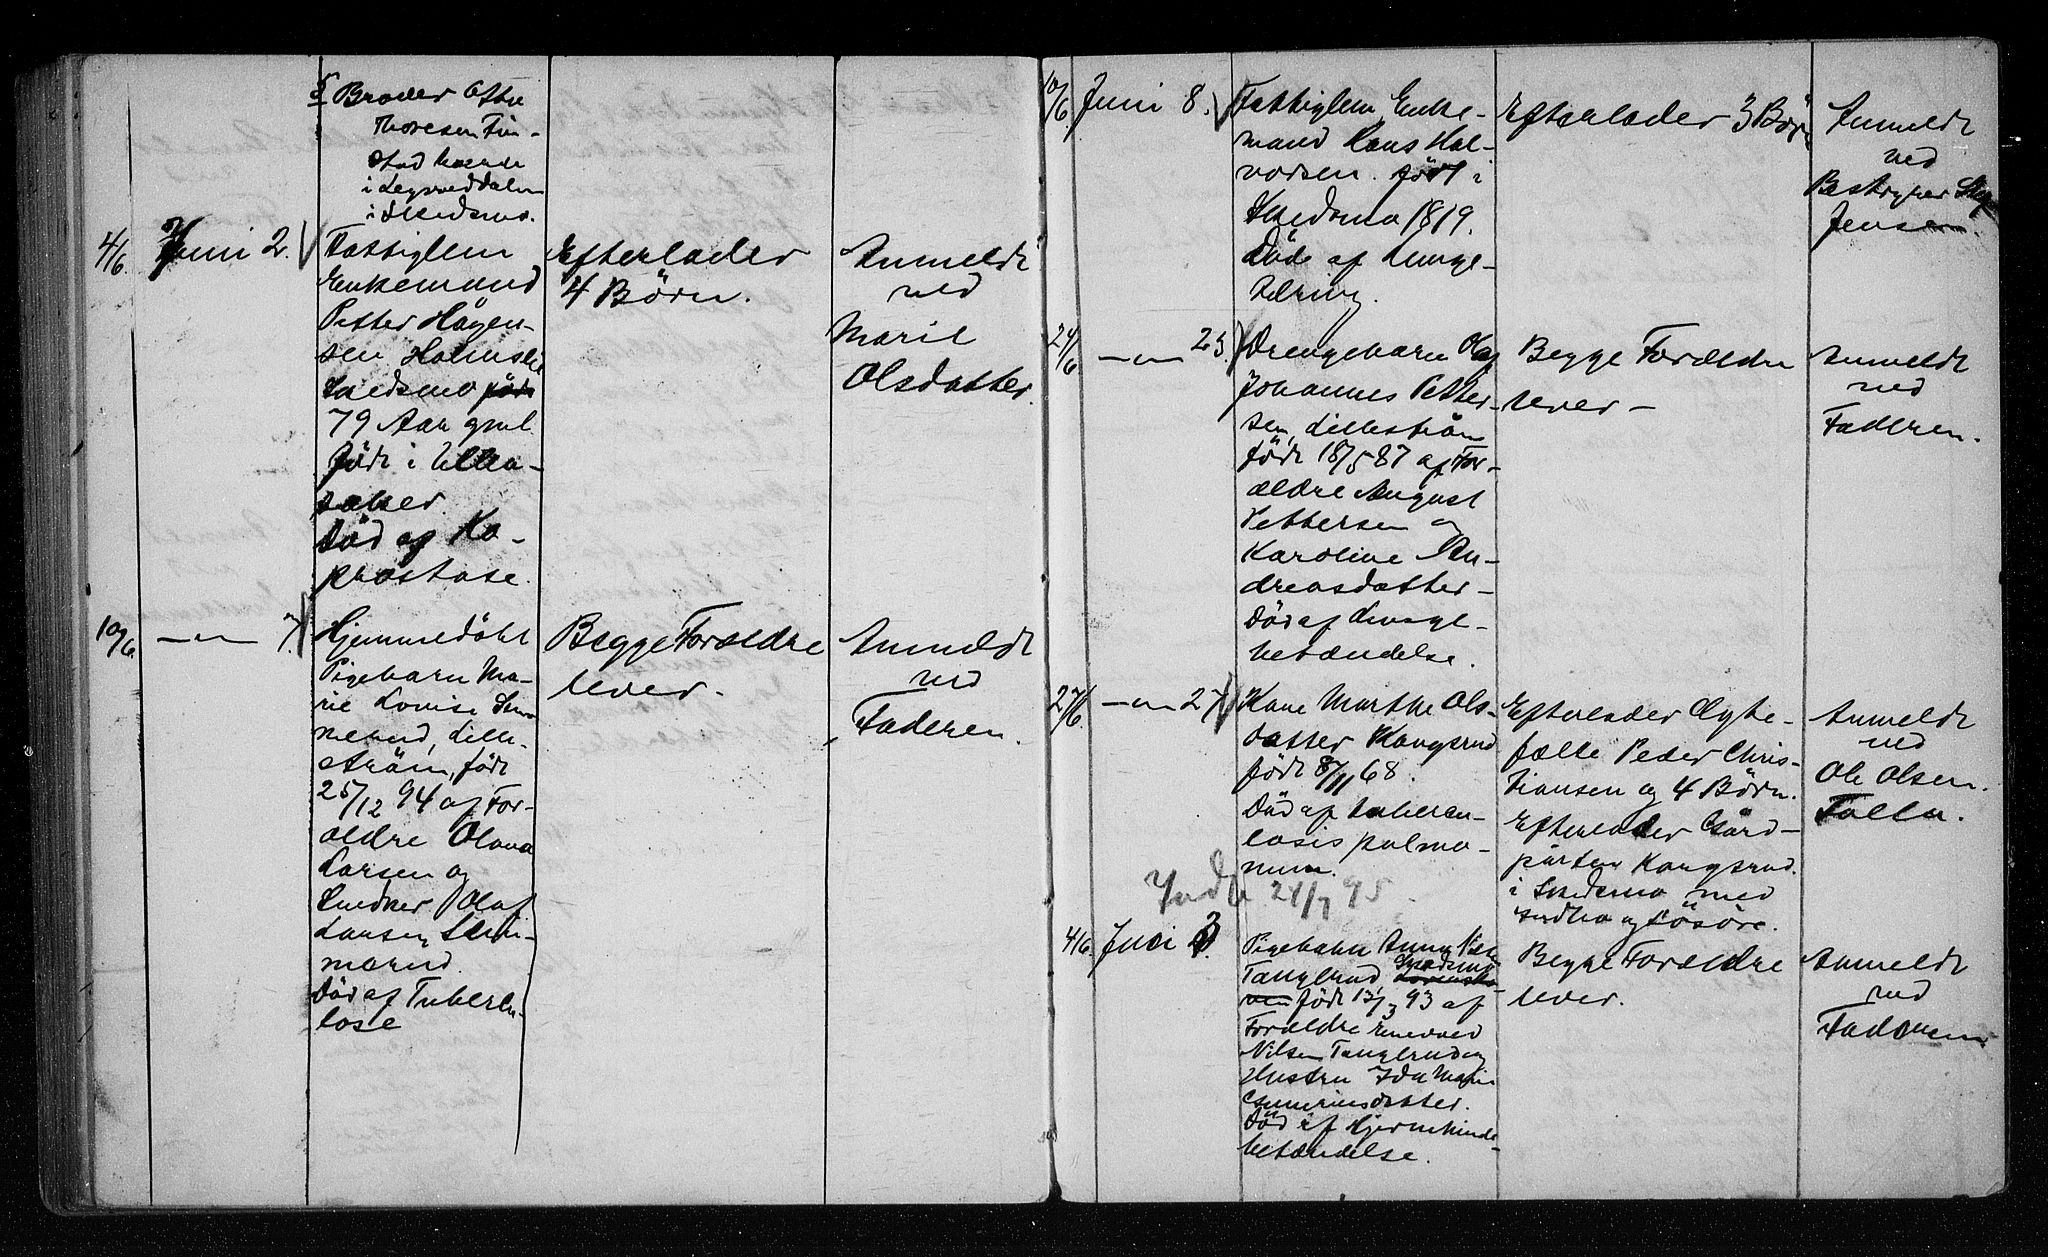 5 Broder Othe
Thoresen Fin-
stad boende
i
i Skedsmo.
4/6. Juni 2. Fattiglem
Enkemand
Petter Hågen-
sen Holmsli
Skedsmo født
79 Aar gml.
født i Ullen-
saker.
Död af Ka-
prostase.
Efterlader
4 Börn.
Anmeldt
ved
Marie
Olsdatter.
10/6. —"— 7. Hjemmedöbt
Pigebarn Ma-
rie Lovise
Lille-
ström, födt
25/12 94 af For-
ældre Olava
Larsen og
Snedker Olaf
Larsen
Död af Tuberku-
lose
Begge Forældre
lever.
Anmeldt
ved
Faderen.
10/6 Juni 8. Fattiglem, Enke-
mand Hans Hal-
vorsen. født i
Skedsmo 1819.
Döde af Lunge-
Efterlader 3 Börn
Anmeldt
ved
Bestyrer
Jensen.
24/6 —"— 23. Drengebarn Olaf
Johannes Petter-
sen, Lilleström
födt 18/5 87 af For-
ældre August
Pettersen og
Karoline An-
dreasdatter-
Död af Lunge-
betændelse.
Begge Forældre
lever —
Anmeldt
ved
Faderen.
27/6 —"— 27 Kone Marthe Ols-
datter Kangsrud
födt 8/11 68.
Död af tubercu-
losis pulmo-
num.
Efterlader Ægte-
fælle Peder Chris-
tiansen og 4 Börn.
Efterlader Gård-
parten Kangsrud
i Skedsmo med
Indbo og Løsöre.
Anmeldt
ved
Ole Olsen
Falla.
Indb 24/7 95.
4/6 Juni 3. Pigebarn Anna
Tanglerud, Skedsmo
födt 13/3 93 af
Forældre
Nilsen Tanglerud og
Hustru Ida Marie
Guneriusdatter.
Död af Hjernehinde-
betændelse.
Begge Forældre
lever.
Anmeldt
ved
Faderen.